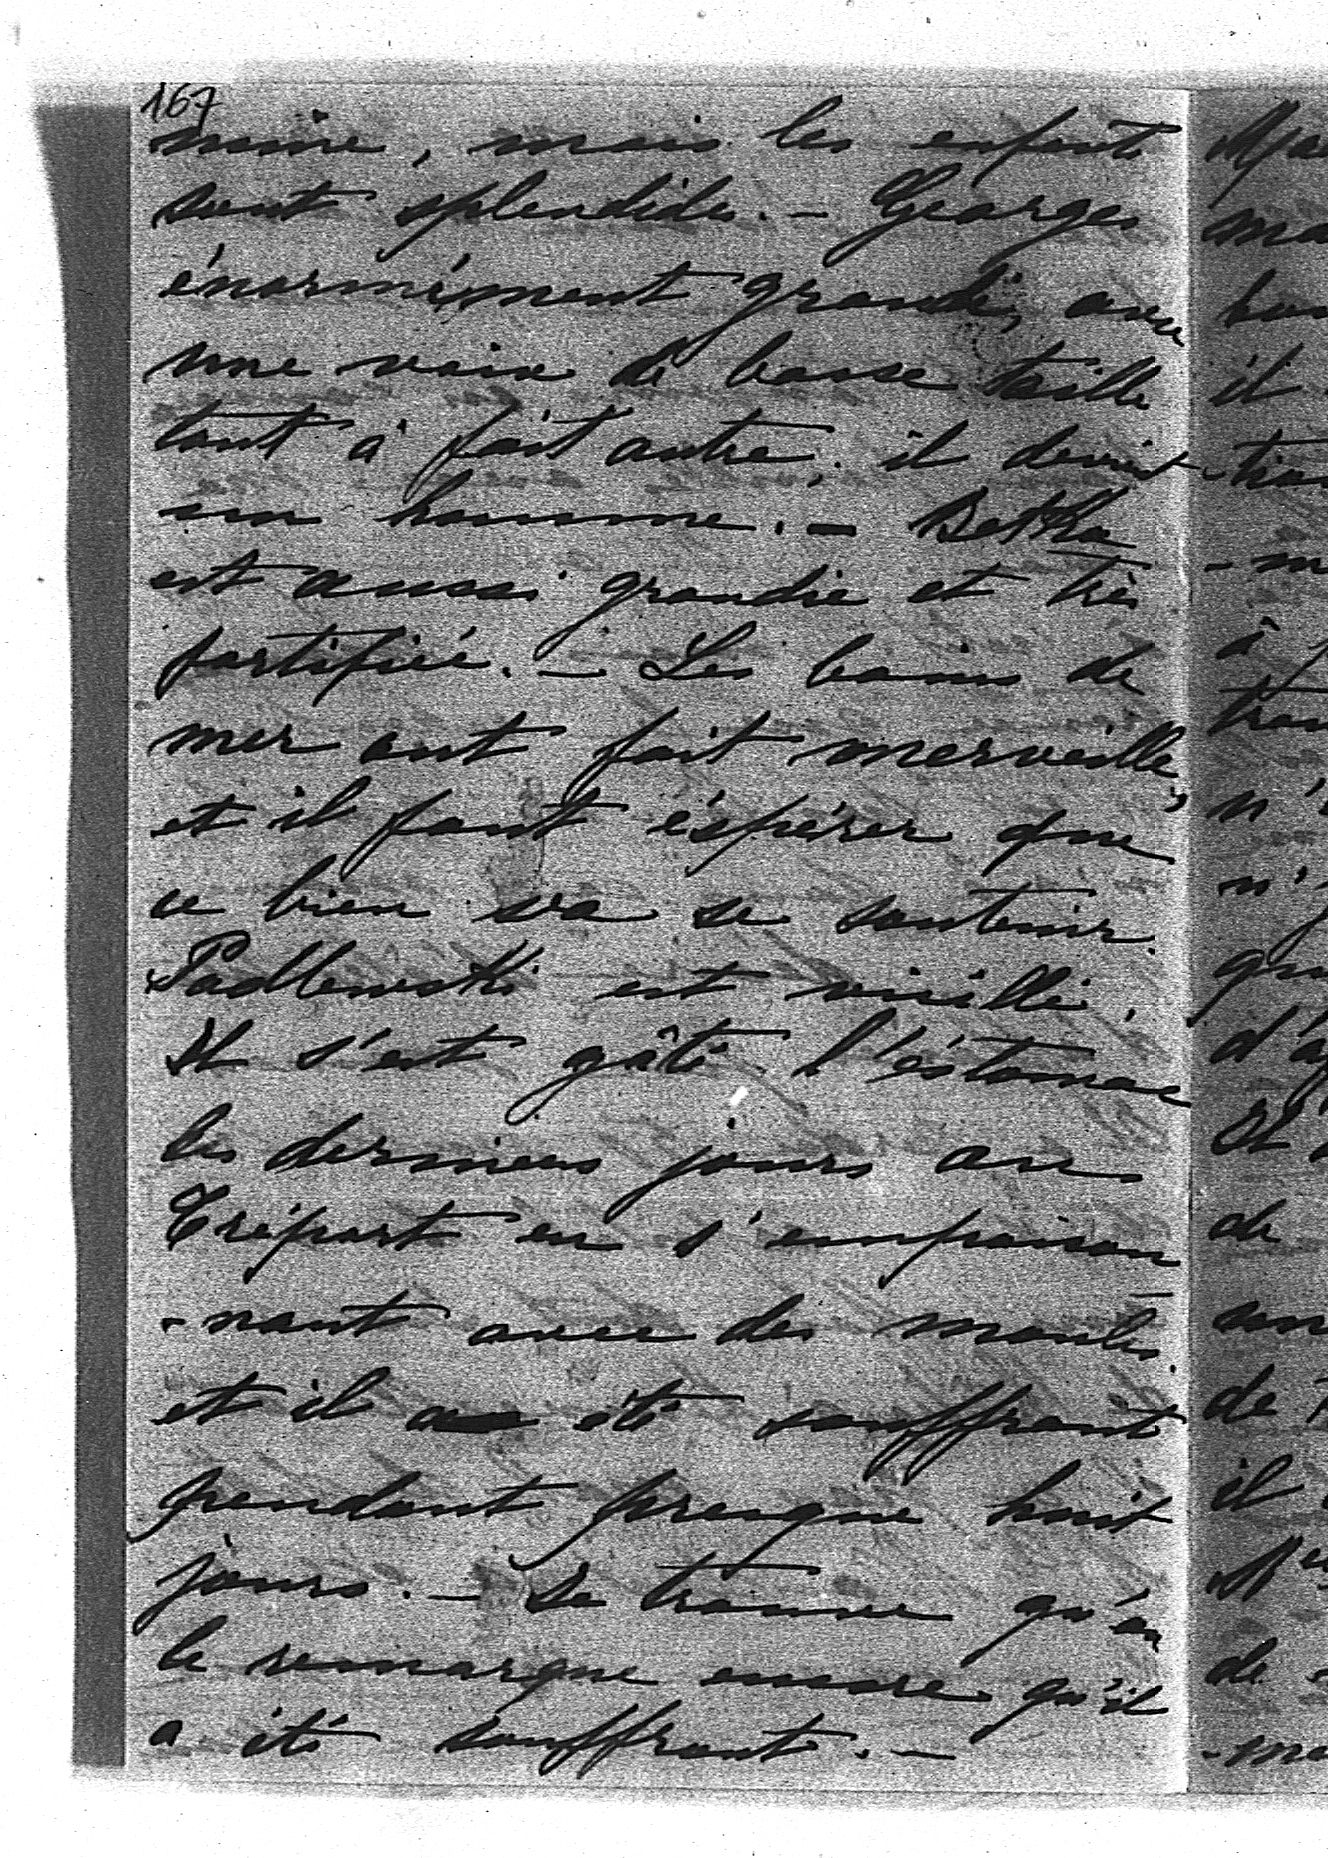 167
mine, mais les enfants
sont splendides. - Georges
énormément grandi, avec
une voix de basse taille
tout à fait autre, il devient
un homme. - Bettka
est aussi grandie et très
fortifiée. - Les bains de
mer ont fait merveille,
et il faut éspérer que
ce bien va se soutenir.
Padlewski est vieilli.
Il s'est gâté l'éstomac
les derniers jours au
Tréport en s'empoison
-nant avec des moules
et il a été souffrant
pendant presque huit
jours. - Je trouve qu'on
le remarque encore qu'il
a été souffrant. -